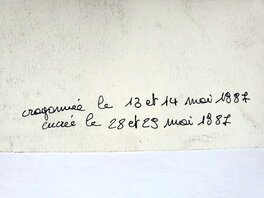 crayonnée le 13 et 14 mai 1987
encrée le 28 et 29 mai 1987